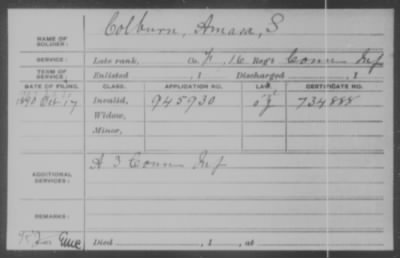 NAME OF SOLDIER: Colburn, Amasa, S
SERVICE: Late rank, Co. F, 16 Reg't Conn Inf
TERM OF SERVICE: Enlisted , 1 Discharged , 1
DATE OF FILING. CLASS. APPLICATION NO. LAW. CERTIFICATE NO.
1890 Oct 17 Invalid, 945930 734888
Widow,
Minor,
ADDITIONAL SERVICES: A 3 Conn Inf
REMARKS:
Died , 1 , at